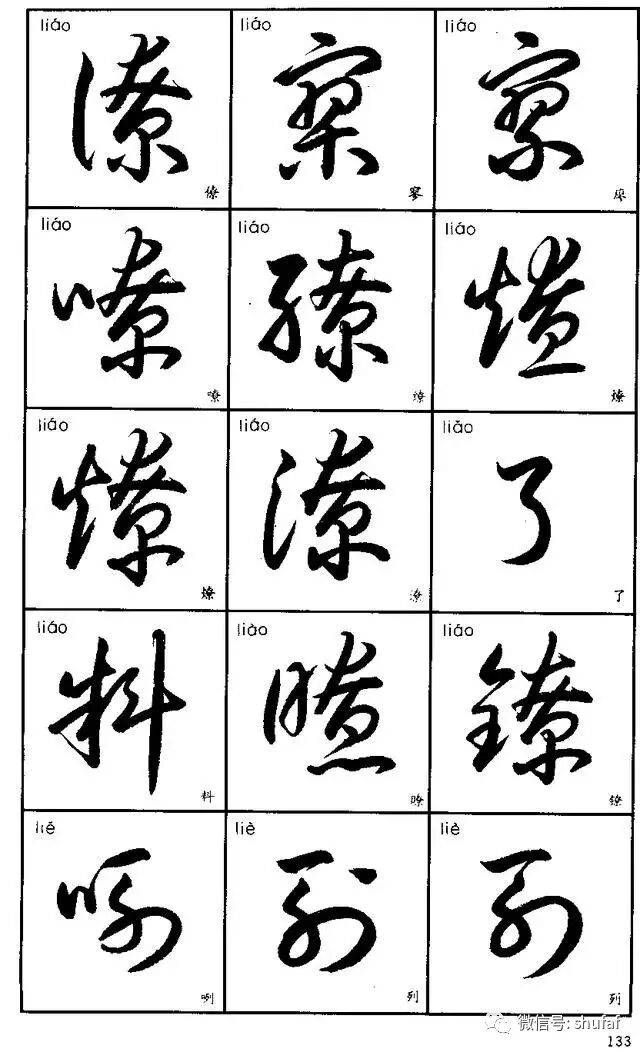 liáo liáo liáo
僚 寥
僚 寥
liáo liáo liáo
嘹 缭 燎
嘹 缭 燎
liáo liáo liǎo
燎 潦 了
燎 潦 了
liáo liào liáo
料 瞭 镣
料 瞭 镣
liě liè liè
咧 列 列
咧 列 列
微信号: shufaf
133